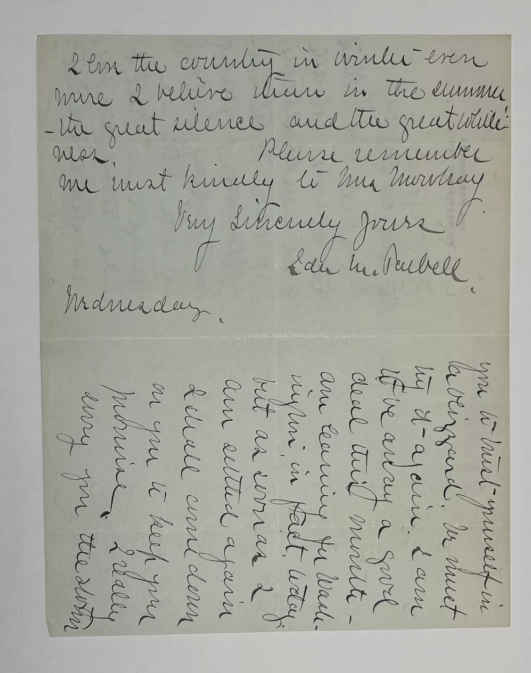 you to trust yourself in
a blizzard. We must
try it again. I am
to be away a good
deal this month -
am leaving for Wash-
ington in fact today,
but as soon as I
am settled again
I shall come down
on you to keep your
promise. I really
envy you the storm
I love the country in winter even
more I believe than in the summer
- the great silence and the great white-
ness. Please remember
me most kindly to Mrs Mowbray.
Very Sincerely Yours
Ida M. Tarbell.
Wednesday.